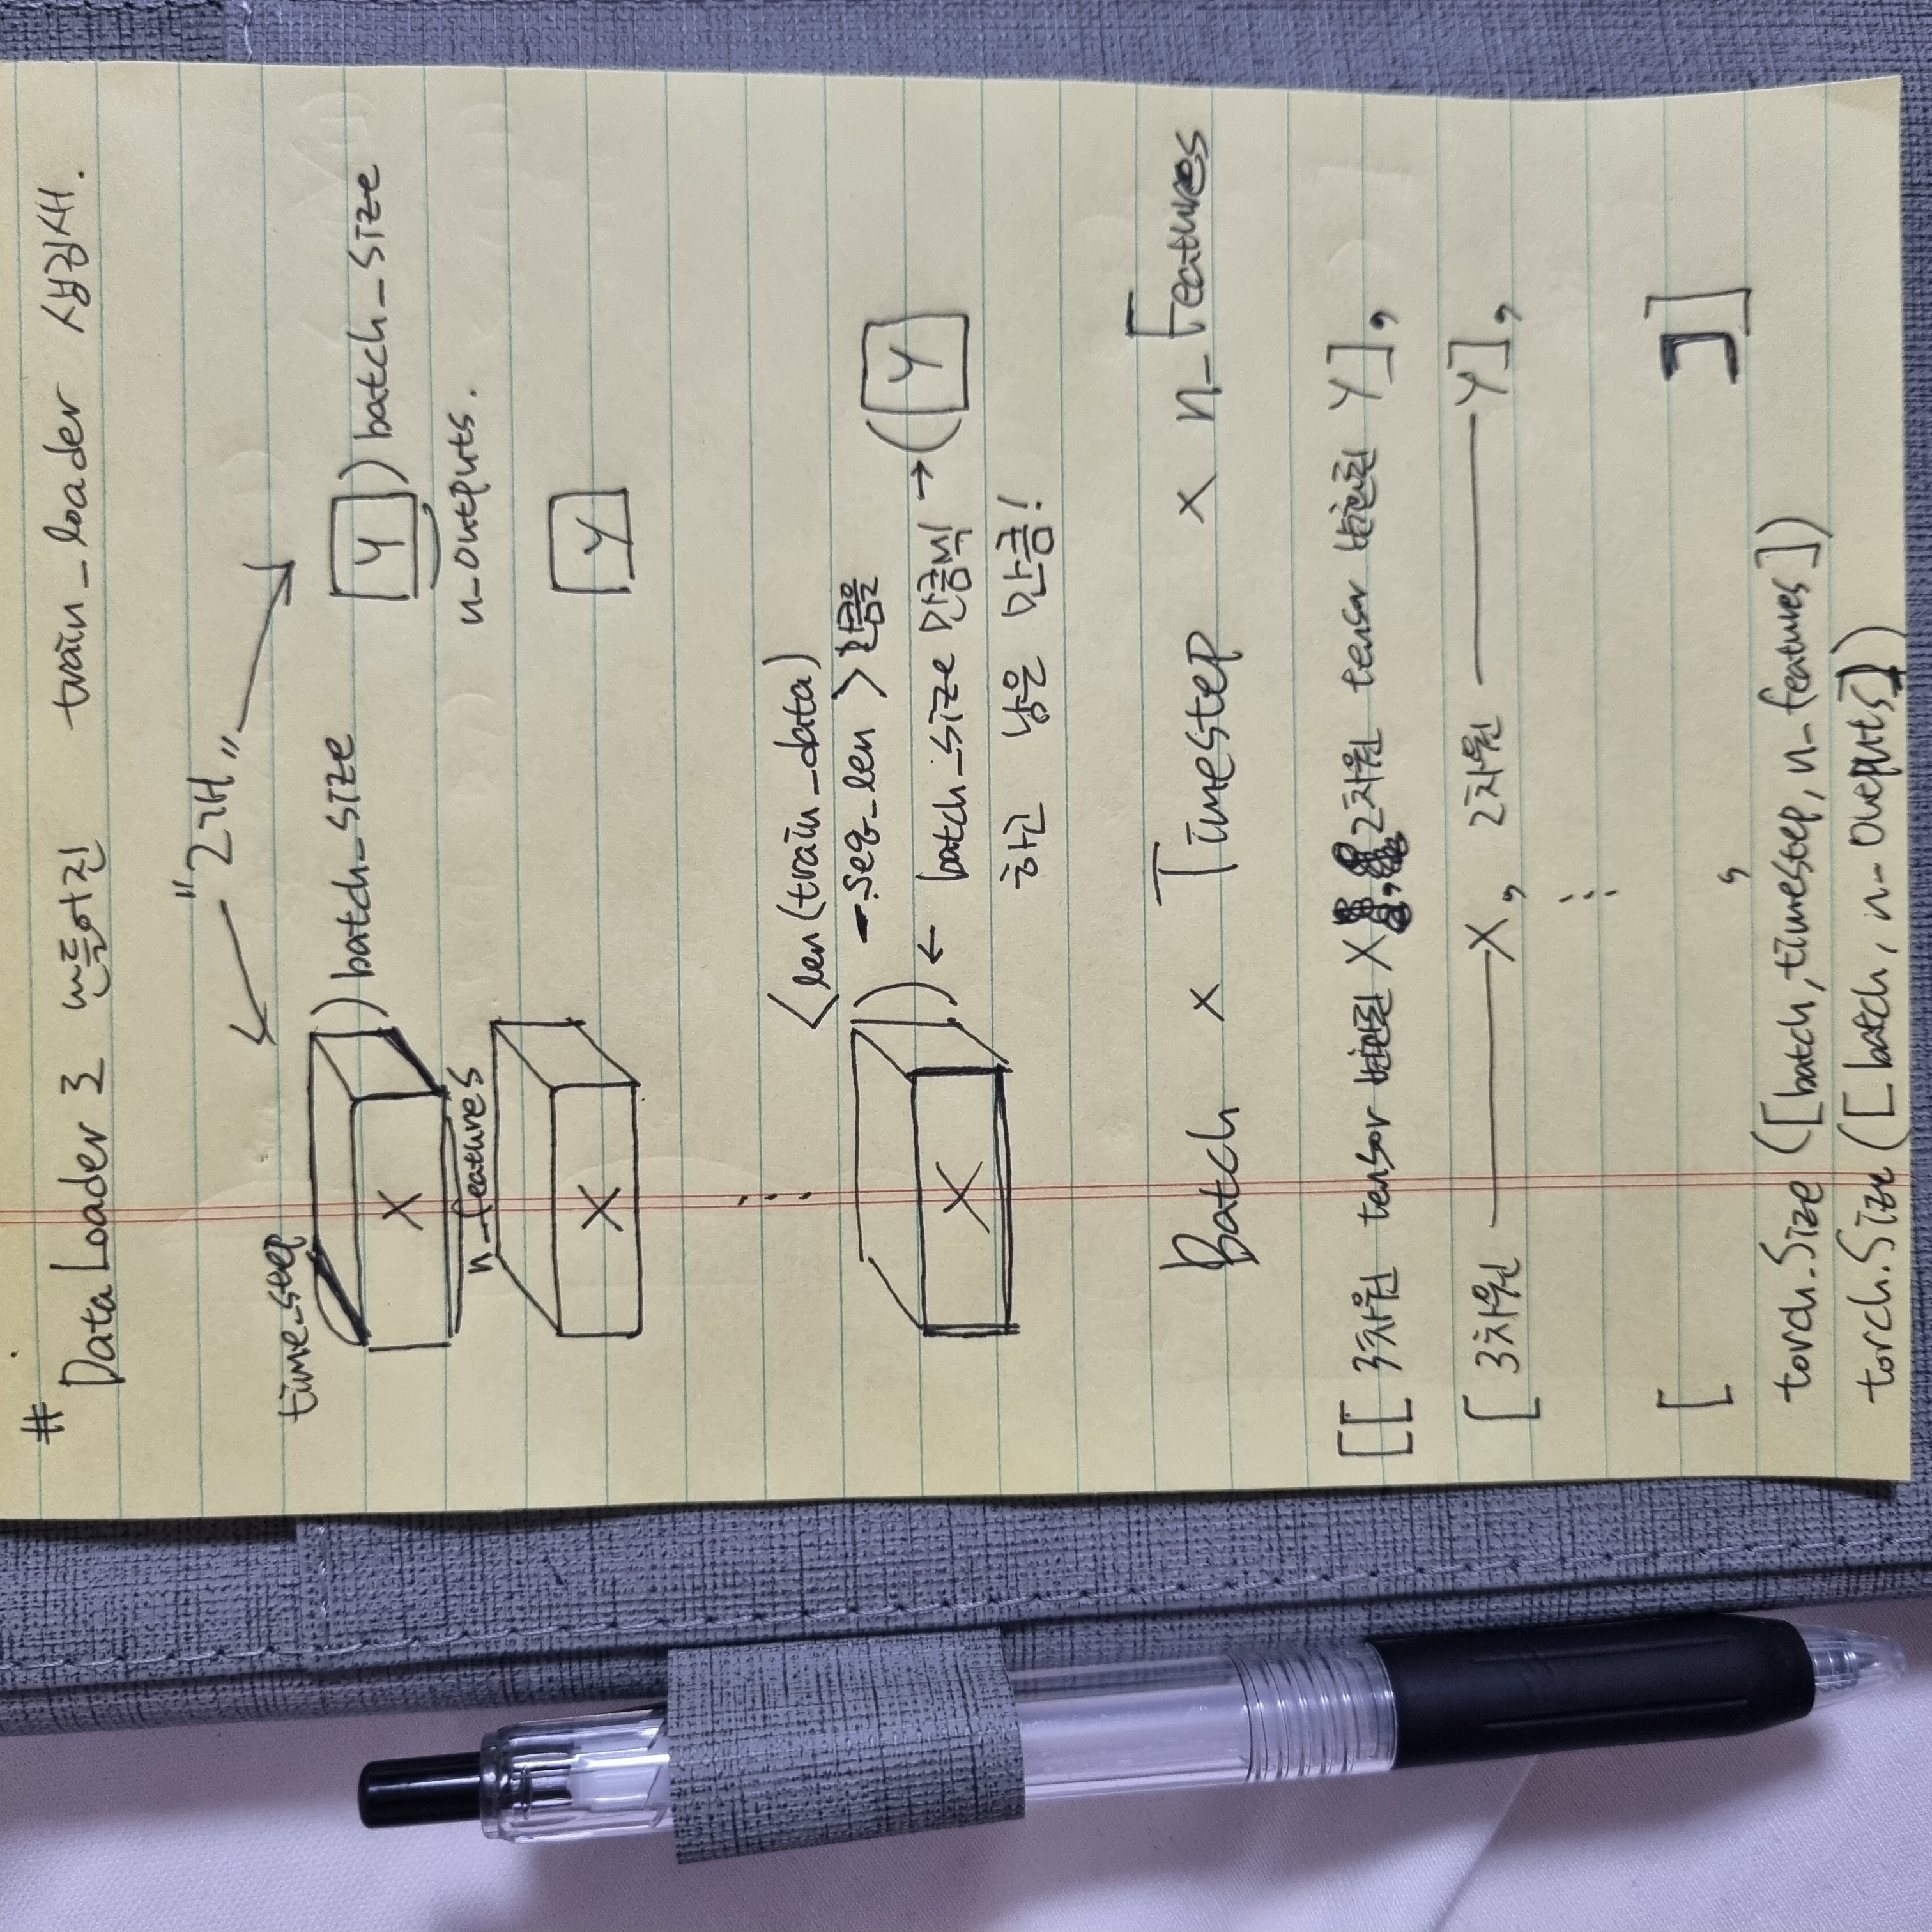 # DataLoader로 만들어진 train_loader 생김새.
"2개"
time_step
X
) batch_size
Y
) batch_size
n_features
n_outputs.
X
Y
<len(train_data)
-seq_len > 만큼을
X
← batch_size 만큼씩 →
Y
하고 남은 만큼!
Batch × Timestep × n_Features
[[ 3차원 tensor 변환된 X, 2차원 tensor 변환된 Y],
[ 3차원 ——— X, 2차원 ——— Y],
⋮
[ , ]]
torch.Size([batch, timestep, n_features])
torch.Size([batch, n_outputs])